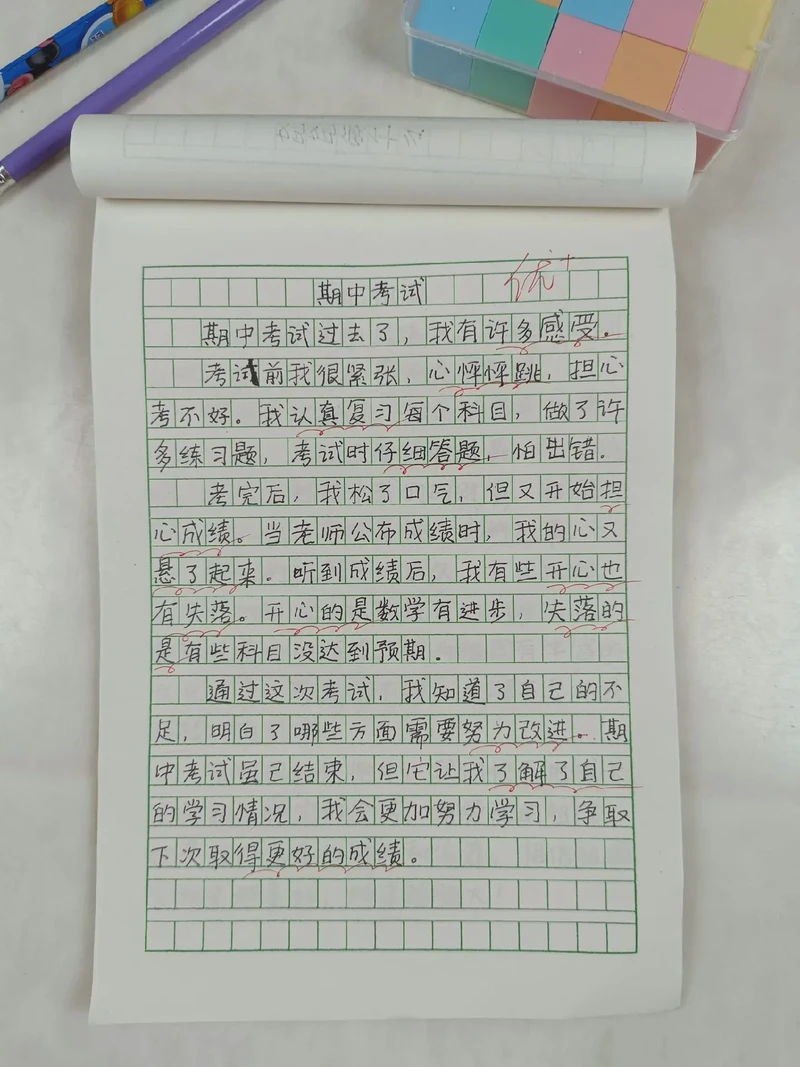 期中考试
优+
期中考试过去了，我有许多感受。
考试前我很紧张，心怦怦跳，担心
考不好。我认真复习每个科目，做了许
多练习题，考试时仔细答题，怕出错。
考完后，我松了口气，但又开始担
心成绩。当老师公布成绩时，我的心又
悬了起来。听到成绩后，我有些开心也
有失落。开心的是数学有进步，失落的
是有些科目没达到预期。
通过这次考试，我知道了自己的不
足，明白了哪些方面需要努为改进。期
中考试虽已结束，但它让我了解了自己
的学习情况，我会更加努力学习，争取
下次取得更好的成绩。